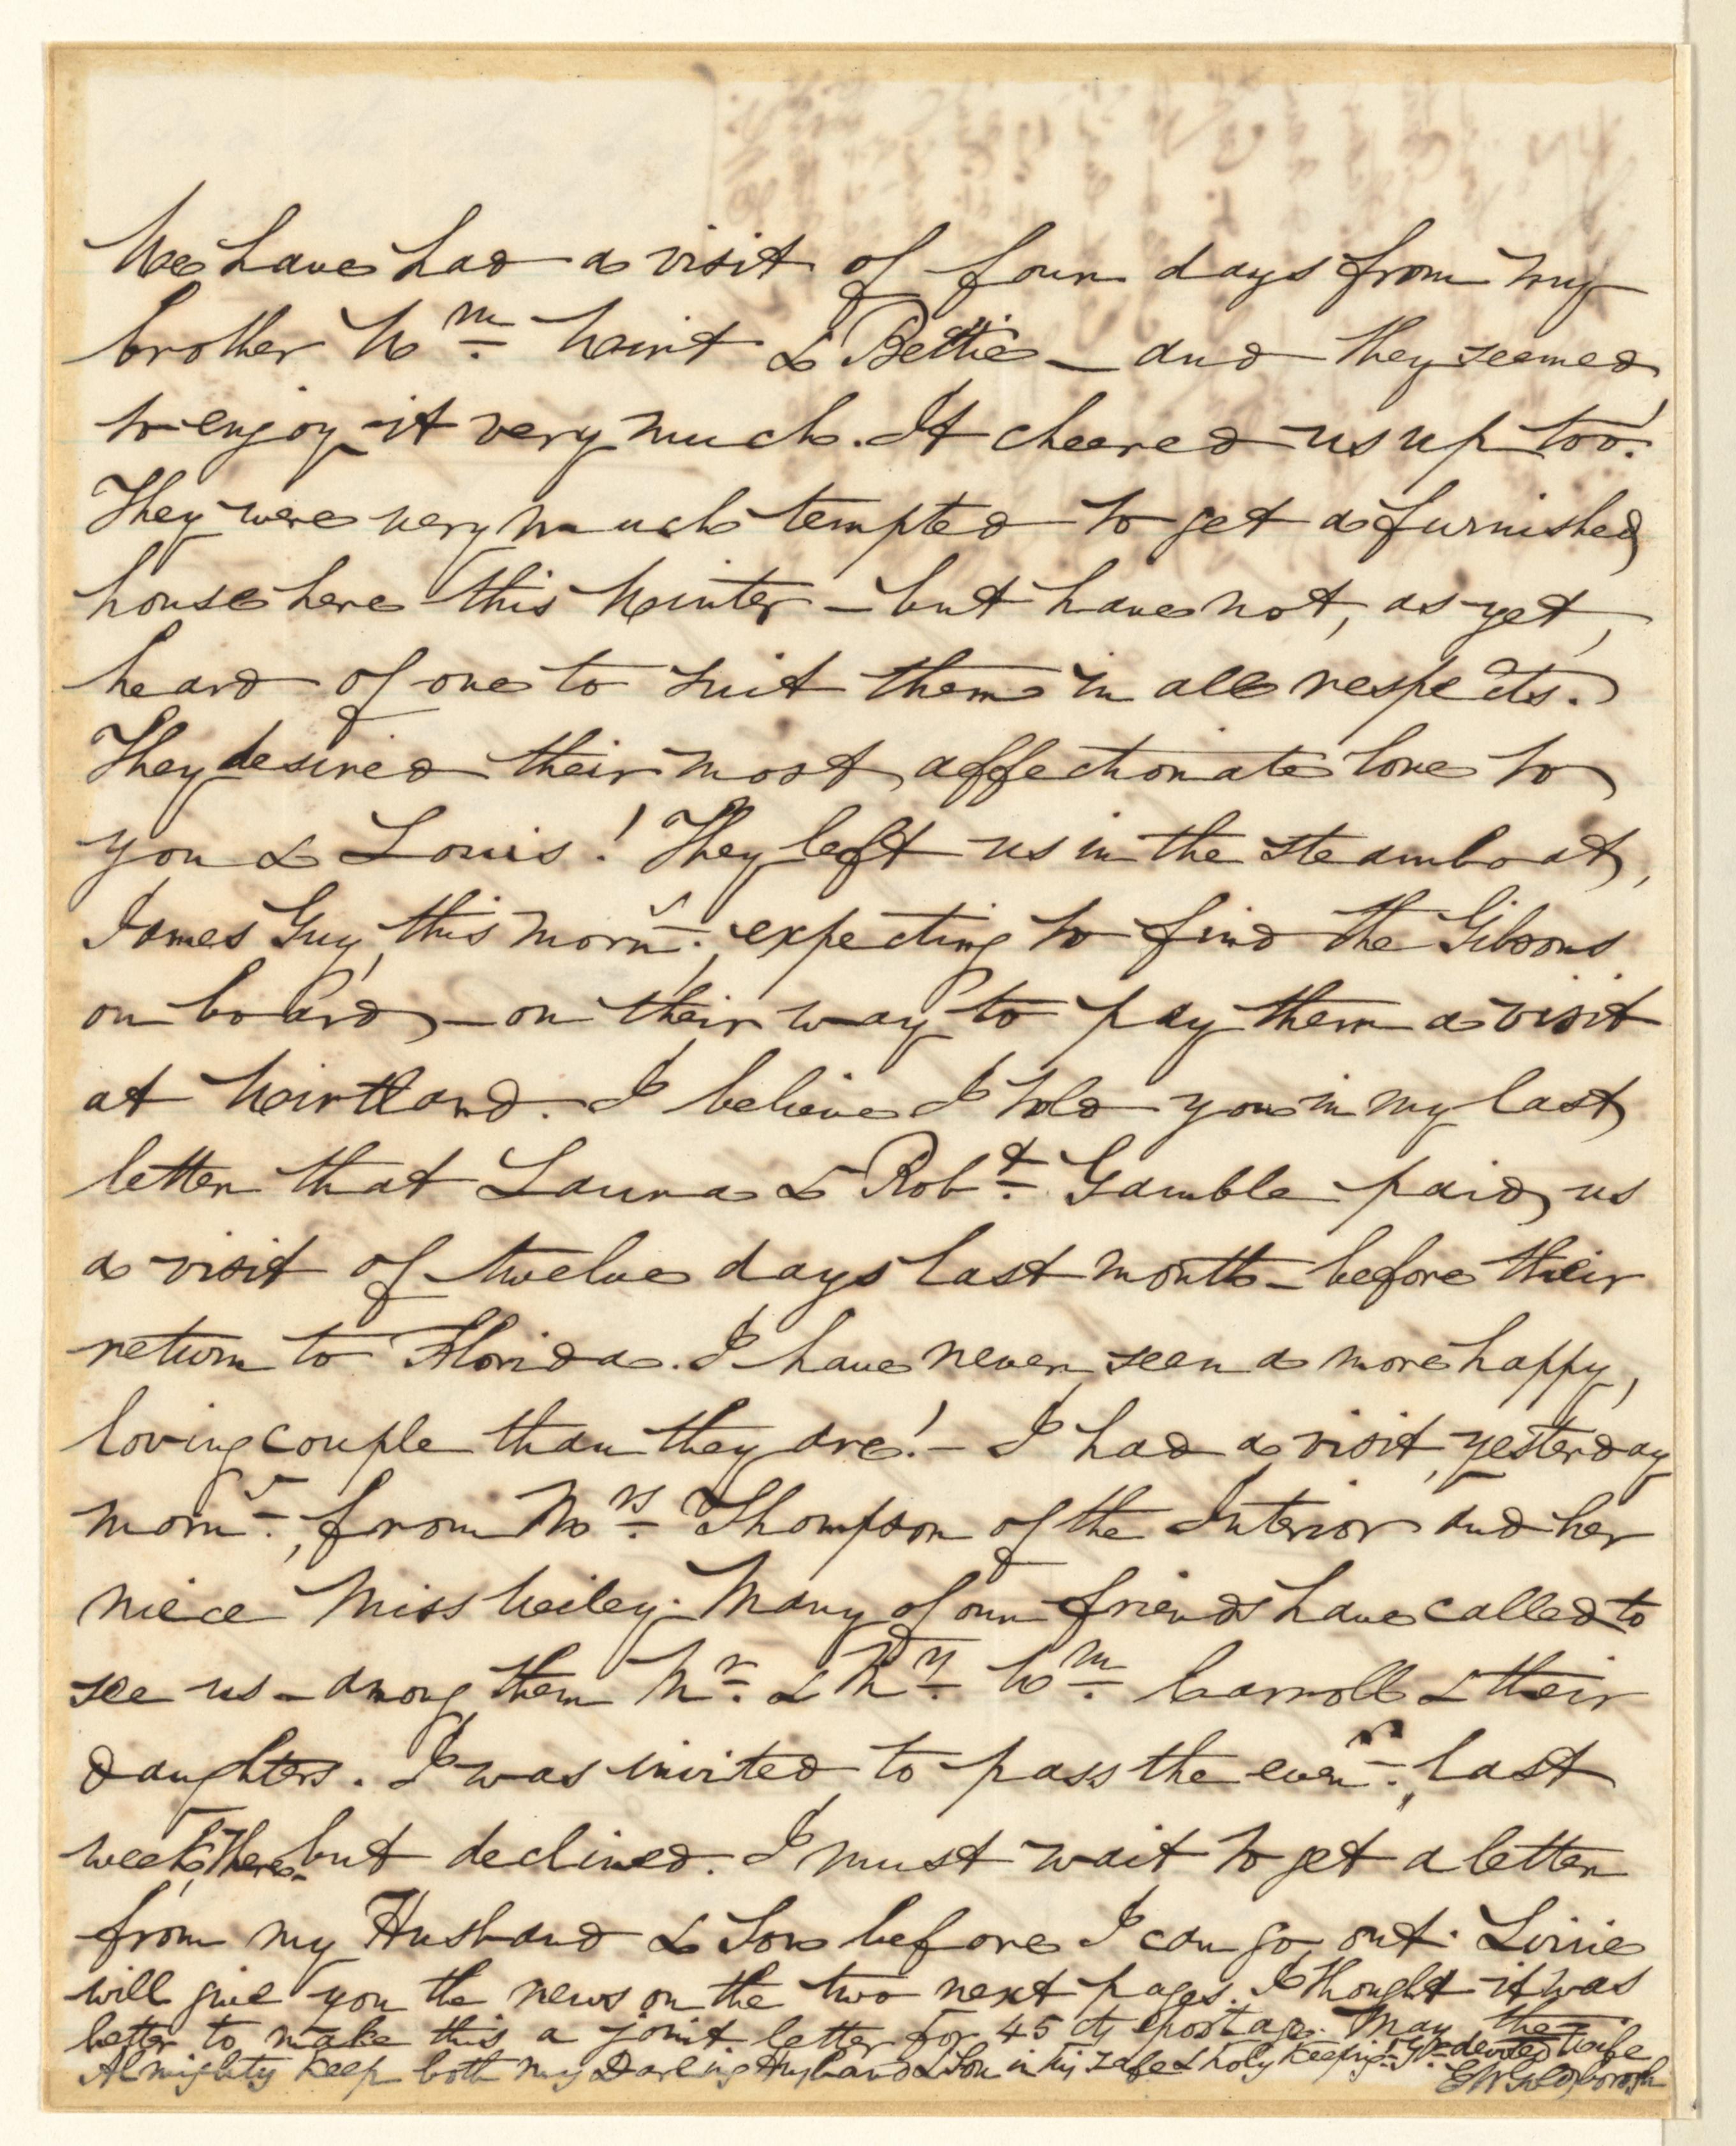 We have had a visit of four days from my
brother Wm. Wirt & Bettie – and they seemed
to enjoy it very much. It cheered us up too!
They were very much tempted to get a furnished
house here this Winter – but have not, as yet,
heard of one to suit them in all respects.
They desired their most affectionate love to
you & Louis! They left us in the steamboat,
James Guy, this morng., expecting to find the Gibsons
on board, – on their way to pay them a visit
at Wirtland. I believe I told you in my last
letter that Laura & Robt. Gamble paid us
a visit of twelve days last month – before their
return to Florida. I have never seen a more happy,
loving couple than they are! – I had a visit, yesterday
morng., from Mrs. Thompson of the Interior and her
niece Miss Wiley. Many of our friends have called to
see us – among them Mr. & Mrs. Wm. Carroll & their
daughters. I was invited to pass the eveng., last
week, there – but declined. I must wait to get a letter
from my Husband & Son before I can go out. Lizzie
will give you the news on the two next pages. I thought it was
better to make this a joint letter for 45 cts postage. May the
Almighty keep both my Darling Husband & Son in his safe & holy keeping! Yr. devoted Wife
E W Goldsborough